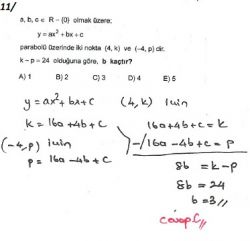 11/
a, b, c ∈ R - {0} olmak üzere;
y = ax² + bx + c
parabolü üzerinde iki nokta (4, k) ve (-4, p) dir.
k - p = 24 olduğuna göre, b kaçtır?
A) 1 B) 2 C) 3 D) 4 E) 5
y = ax² + bx + c (4, k) için
k = 16a + 4b + c 16a + 4b + c = k
(-4, p) için -/ 16a - 4b + c = p
p = 16a - 4b + c 8b = k - p
8b = 24
b = 3 //
cevap C //